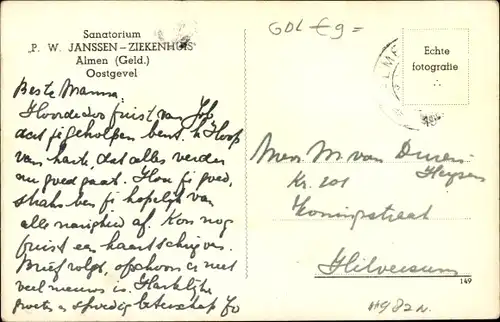 Sanatorium
„P. W. JANSSEN – ZIEKENHUIS”
Almen (Geld.)
Oostgevel
GDL € 9 =
Echte
fotografie
Beste Mamma.
Hoorde zoo juist van Job
dat je geholpen bent. 'k Hoop
van harte, dat alles verder
nu goed gaat. Hou je goed,
straks ben je hopelijk van
alle narigheid af. Kon nog
juist een kaart schrijven.
Brief volgt, ofschoon er niet
veel nieuws is. Hartelijke
groeten en spoedig beterschap Jo
Mevr. M. van
Kr. 201
Koningstraat
Hilversum
149